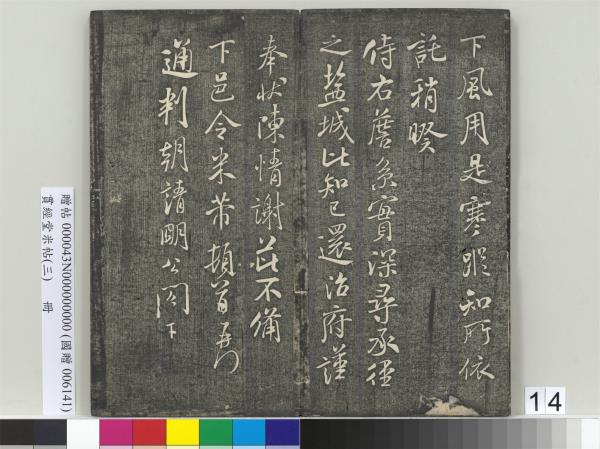 下風用是寒蹤知所依
託稍暌
侍右簷系實深尋承徑
之鹽城比知已還治府謹
奉狀陳情謝茲不備
下邑令米芾頓首再
通判朝請明公閣下
贈帖 000043N000000000 (國贈 006141)
賞經堂米帖(三) 冊
14